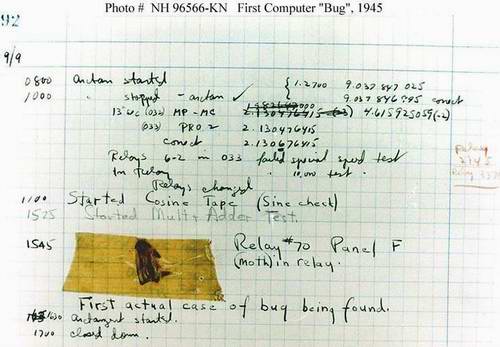 Photo # NH 96566-KN First Computer "Bug", 1945
92
9/9
0800 Antan started
1000 " stopped - antan ✓ { 1.2700 9.037 847 025
9.037 846 995 correct
13"uc (032) MP - MC 2.130476415 4.615925059(-2)
(033) PRO 2 2.130476415
correct 2.130676415
Relays 6-2 in 033 failed special speed test
In Relay " 10,000 test.
Relay
2145
Relays changed
1100 Started Cosine Tape (Sine check)
1525 Started Mult+ Adder Test.
1545 Relay #70 Panel F
(moth) in relay.
First actual case of bug being found.
1630 antangent started.
1700 closed down.